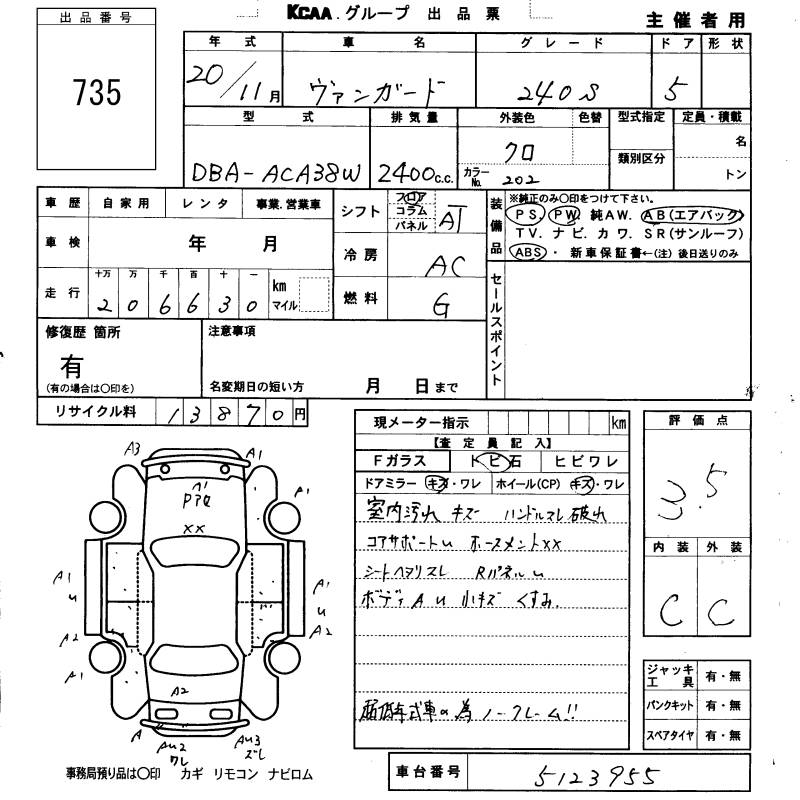 KCAA グループ 出品票
主催者用
出品番号
735
年式 車名 グレード ドア 形状
20/11月 ヴァンガード 240S 5
型式 排気量 外装色 色替 型式指定 定員・積載
DBA-ACA38W 2400c.c. クロ 名
カラーNo. 202 類別区分 トン
車歴 自家用 レンタ 事業.営業車
車検 年 月
走行 十万 万 千 百 十 一
206630 km マイル
シフト フロア コラム パネル AT
冷房 AC
燃料 G
装備品 ※純正のみ○印をつけて下さい。
PS. PW. 純AW. AB(エアバック)
TV. ナビ. カワ. SR(サンルーフ)
ABS・ 新車保証書←(注)後日送りのみ
セールスポイント
修復歴 箇所
有
(有の場合は○印を)
注意事項
名変期日の短い方 月 日まで
リサイクル料 13870円
現メーター指示 km
【査定員記入】
Fガラス トビ石 ヒビワレ
ドアミラー キズ・ワレ ホイール(CP) キズ・ワレ
室内汚れ キズ ハンドルスレ 破れ
コアサポートu ホースメントXX
シートヘタリスレ Rパネルu
ボディAu 小キズ くすみ.
超低年式車の為 ノークレーム!!
評価点
3.5
内装 外装
C C
ジャッキ工具 有・無
パンクキット 有・無
スペアタイヤ 有・無
車台番号 5123955
A3 A1
A1
Pアα
XX
A1
A1
u
A2
A1
A1
u
A2
A2
A
Au2 ワレ
Au3 ズレ
事務局預り品は○印 カギ リモコン ナビロム